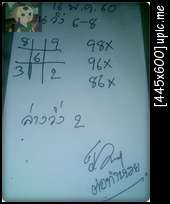 16 พ.ย. 60
วิ่ง 6-8
8 9
6
3 2
98X
96X
86X
ล่างวิ่ง 2
[445x600] upic.me